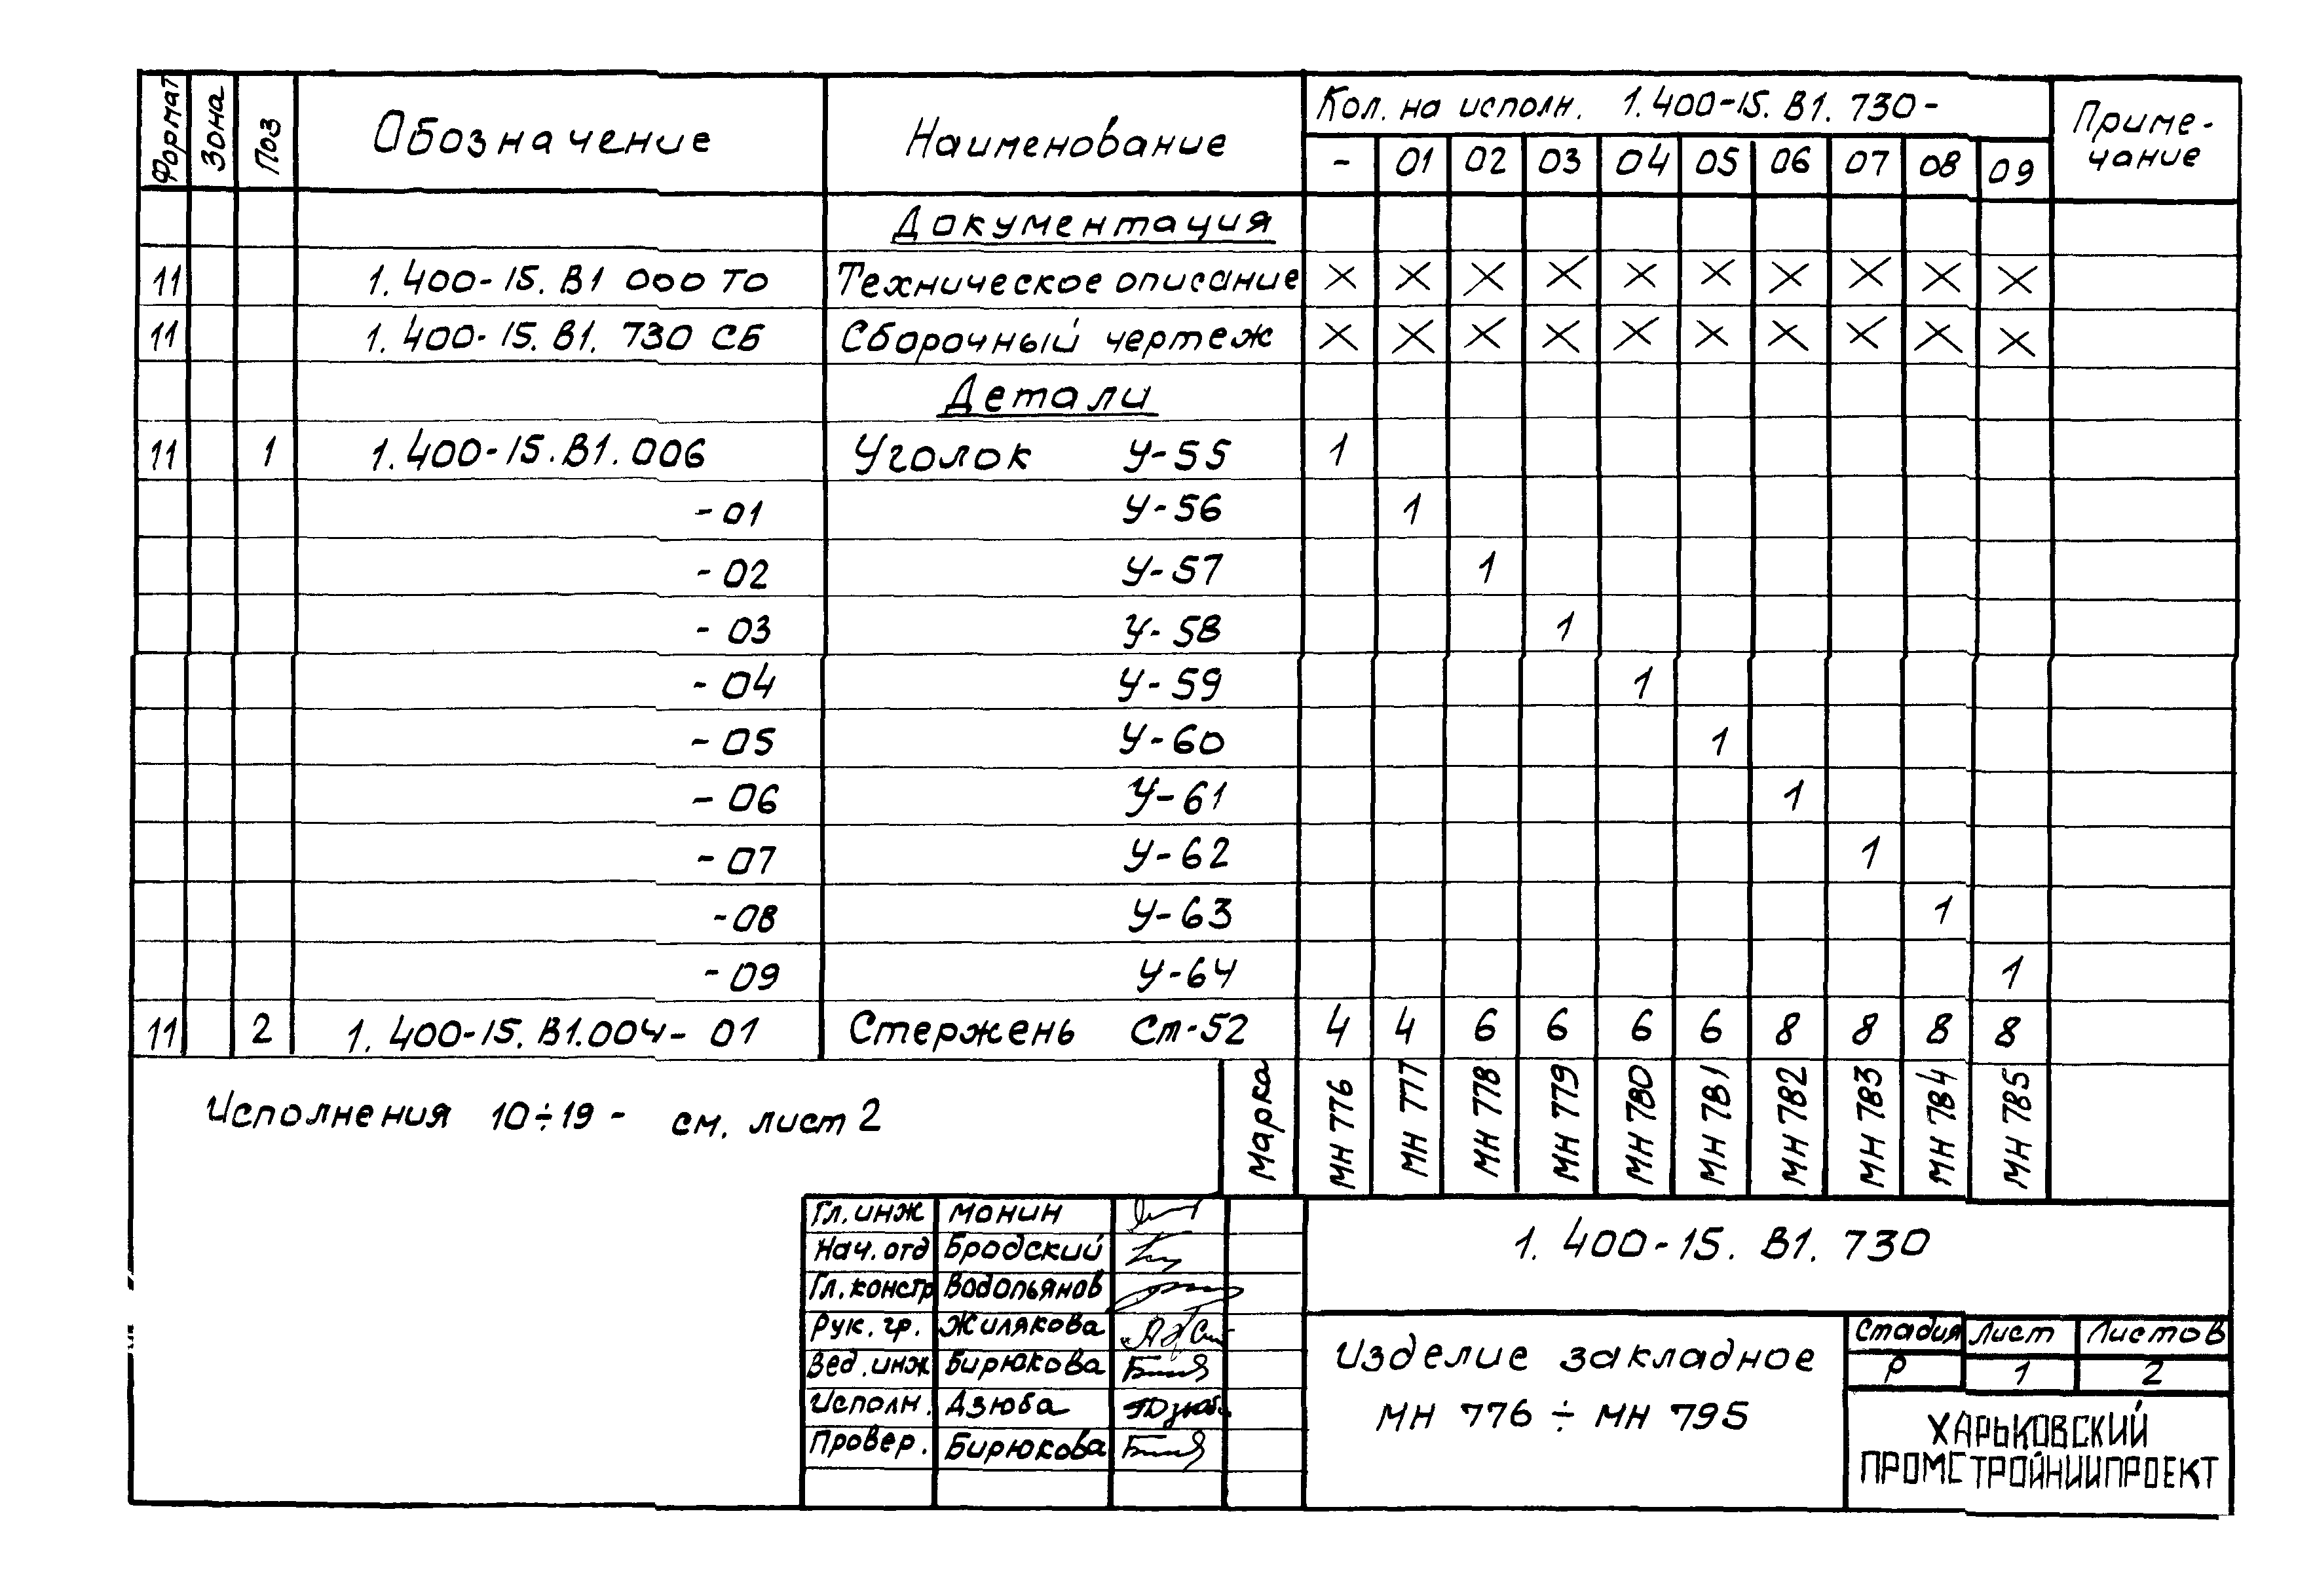 Формат Зона Поз Обозначение Наименование Кол. на исполн. 1.400-15.В1.730- Приме-
чание
- 01 02 03 04 05 06 07 08 09
Документация
11 1.400-15.В1 000 ТО Техническое описание X X X X X X X X X X
11 1.400-15.В1.730 СБ Сборочный чертеж X X X X X X X X X X
Детали
11 1 1.400-15.В1.006 Уголок У-55 1
-01 У-56 1
-02 У-57 1
-03 У-58 1
-04 У-59 1
-05 У-60 1
-06 У-61 1
-07 У-62 1
-08 У-63 1
-09 У-64 1
11 2 1.400-15.В1.004-01 Стержень Ст-52 4 4 6 6 6 6 8 8 8 8
Исполнения 10÷19 - см. лист 2
Марка МН 776 МН 777 МН 778 МН 779 МН 780 МН 781 МН 782 МН 783 МН 784 МН 785
Гл. инж Монин
Нач. отд Бродский
Гл. констр Водопьянов
Рук. гр. Жилякова
Вед. инж Бирюкова
Исполн. Дзюба
Провер. Бирюкова
1.400-15.В1.730
Изделие закладное
МН 776 ÷ МН 795
Стадия Лист Листов
Р 1 2
ХАРЬКОВСКИЙ
ПРОМСТРОЙНИИПРОЕКТ